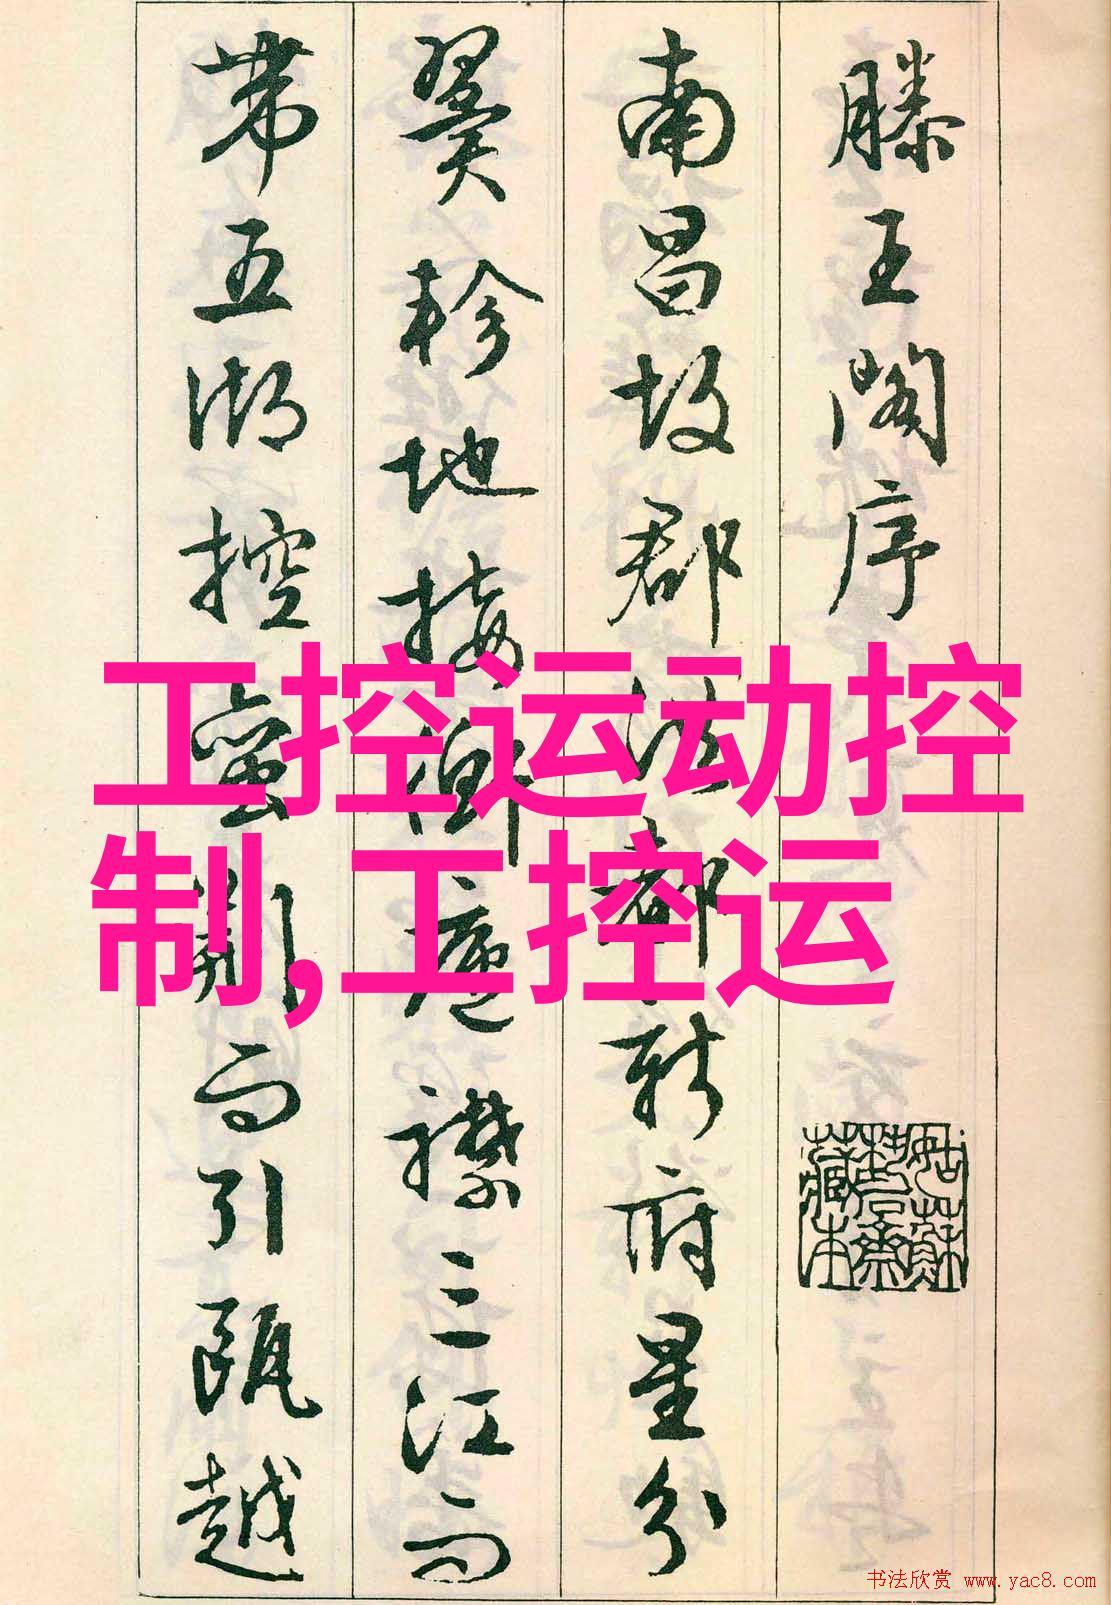 滕王阁序
南昌故郡洪都新府星分
翼轸地接衡庐襟三江而
带五湖控蛮荆而引瓯越
工控运动控
制,工控运
姑苏
楳景斋
藏本
书法欣赏 www.yac8.com